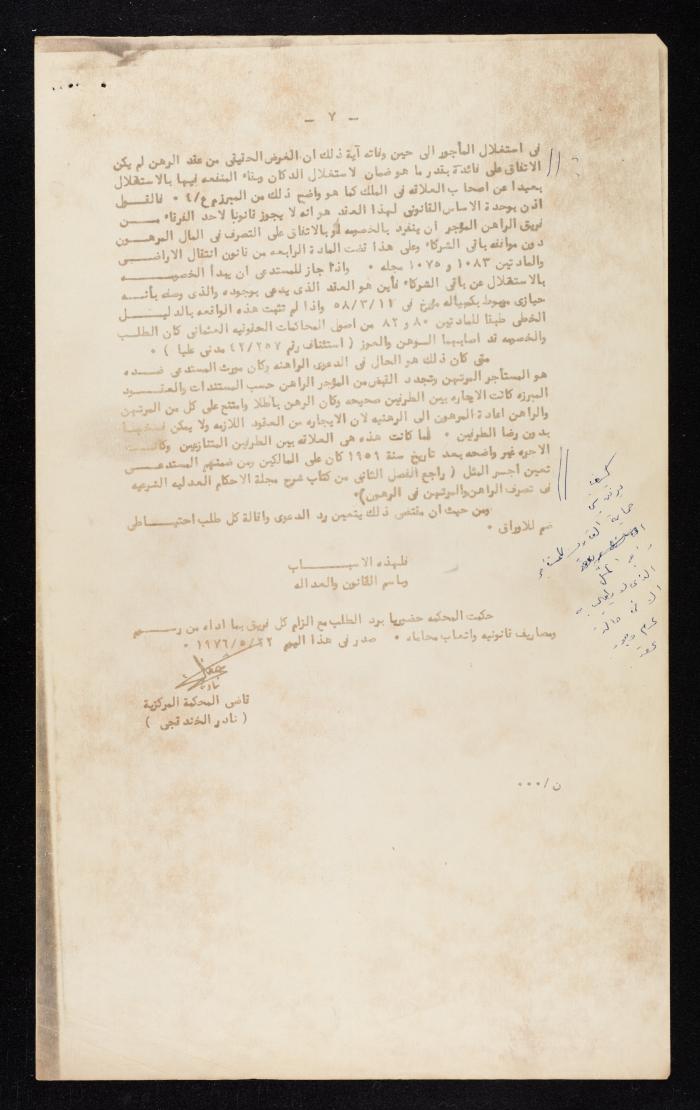 - ٧ -
في استغلال المأجور الى حين وفاته آية ذلك ان الغرض الحقيقي من عقد الرهن لم يكن
الاتفاق على فائدة بقدر ما هو ضمان لاستغلال الدكان وبقاء المنفعه فيها بالاستقلال
بعيدا عن اصحاب العلاقه في الملك كما هو واضح ذلك من المبرز م ع/٤ • فالقول
اذن بوحدة الاساس القانوني لهذا العقد هو انه لا يجوز قانونا لاحد الفرقاء من
فريق الراهن المؤجر ان ينفرد بالخصومه او بالاتفاق على التصرف في المال المرهون
دون موافقه باقي الشركاء وعلى هذا نصت المادة الرابعه من قانون انتقال الاراضي
والمادتين ١٠٨٣ و ١٠٧٥ مجله • واذا جاز للمستدعي ان يبدأ الخصومه
بالاستقلال عن باقي الشركاء فأين هو العقد الذي يدعي بوجوده والذي وصفه بأنه
حيازي مربوط بكمبياله مؤرخ في ٥٨/٣/١٢ واذا لم تثبت هذه الواقعه بالدليل
الخطي طبقا للمادتين ٨٠ و ٨٢ من اصول المحاكمات الحقوقيه العثماني كان الطلب
والخصومه قد اصابهما الوهن والعوز ( استئناف رقم ٤٢/٢٥٧ مدني عليا ) •
متى كان ذلك هو الحال في الدعوى الراهنه وكان مورث المستدعى ضده
هو المستأجر المرتهن وتجدد القبض من المؤجر الراهن حسب المستندات والعقود
المبرزه كانت الاجاره بين الطرفين صحيحه وكان الرهن باطلا وامتنع على كل من المرتهن
والراهن اعادة المرهون الى الرهنيه لان الاجاره من العقود اللازمه ولا يمكن فسخها
بدون رضا الطرفين • لما كانت هذه هي العلاقه بين الطرفين المتنازعين وكانت
الاجره غير واضحه بعد تاريخ سنة ١٩٥١ كان على المالكين ومن ضمنهم المستدعي
تعين اجر المثل ( راجع الفصل الثاني من كتاب شرح مجلة الاحكام العدليه الشرعيه
في تصرف الراهن والمرتهن في الرهون)•
ومن حيث ان مقتضى ذلك يتعين رد الدعوى واقالة كل طلب احتياطي
ضم للاوراق •
فلهذه الاسباب
وباسم القانون والعداله
حكمت المحكمه حضوريا برد الطلب مع الزام كل فريق بما اداه من رسم
ومصاريف قانونيه واتعاب محاماه • صدر في هذا اليوم ١٩٧٦/٥/٢٢ •
نادر
قاضي المحكمة المركزية
( نادر الخندقجي )
ن/٠٠٠
كيف
حماية القانون للمستأجر
عدم وجود
عقد